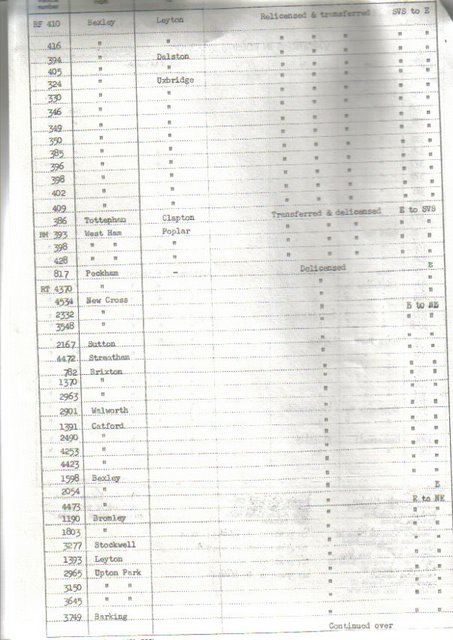 number
RF 410 Bexley Leyton Relicensed & transferred SVS to E
416 " " " " " " "
394 " Dalston " " " " "
405 " " " " " " "
324 " Uxbridge " " " " "
330 " " " " " " "
346 " " " " " " "
349 " " " " " " "
350 " " " " " " "
385 " " " " " " "
396 " " " " " " "
398 " " " " " " "
402 " " " " " " "
409 " " " " " " "
386 Tottenham Clapton Transferred & delicensed E to SVS
RM 393 West Ham Poplar " " " " "
398 " " " " " " " "
428 " " " " " " " "
817 Peckham - Delicensed E
RT 4370 " " "
4534 New Cross " "
2332 " " E to NE
3548 " " " "
2167 Sutton " " "
4472 Streatham " " "
782 Brixton " " "
1370 " " " "
2963 " " " "
2901 Walworth " " "
1391 Catford " " "
2490 " " " "
4253 " " " "
4423 " " " "
1598 Bexley " E
2054 " " E
4473 " " E to NE
1190 Bromley " " "
1803 " " " "
3277 Stockwell " " "
1393 Leyton " " "
2965 Upton Park " " "
3150 " " " " "
3645 " " " " "
3749 Barking " " "
Continued over